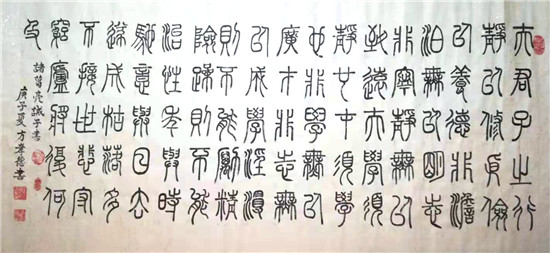 夫君子之行
靜以修身儉
以養德非澹
泊無以明志
非寧靜無以
致遠夫學須
靜也才須學
也非學無以
廣才非志無
以成學淫慢
則不能勵精
險躁則不能
治性年與時
馳意與日去
遂成枯落多
不接世悲守
窮廬將復何
及
諸葛亮誡子書
庚子夏方